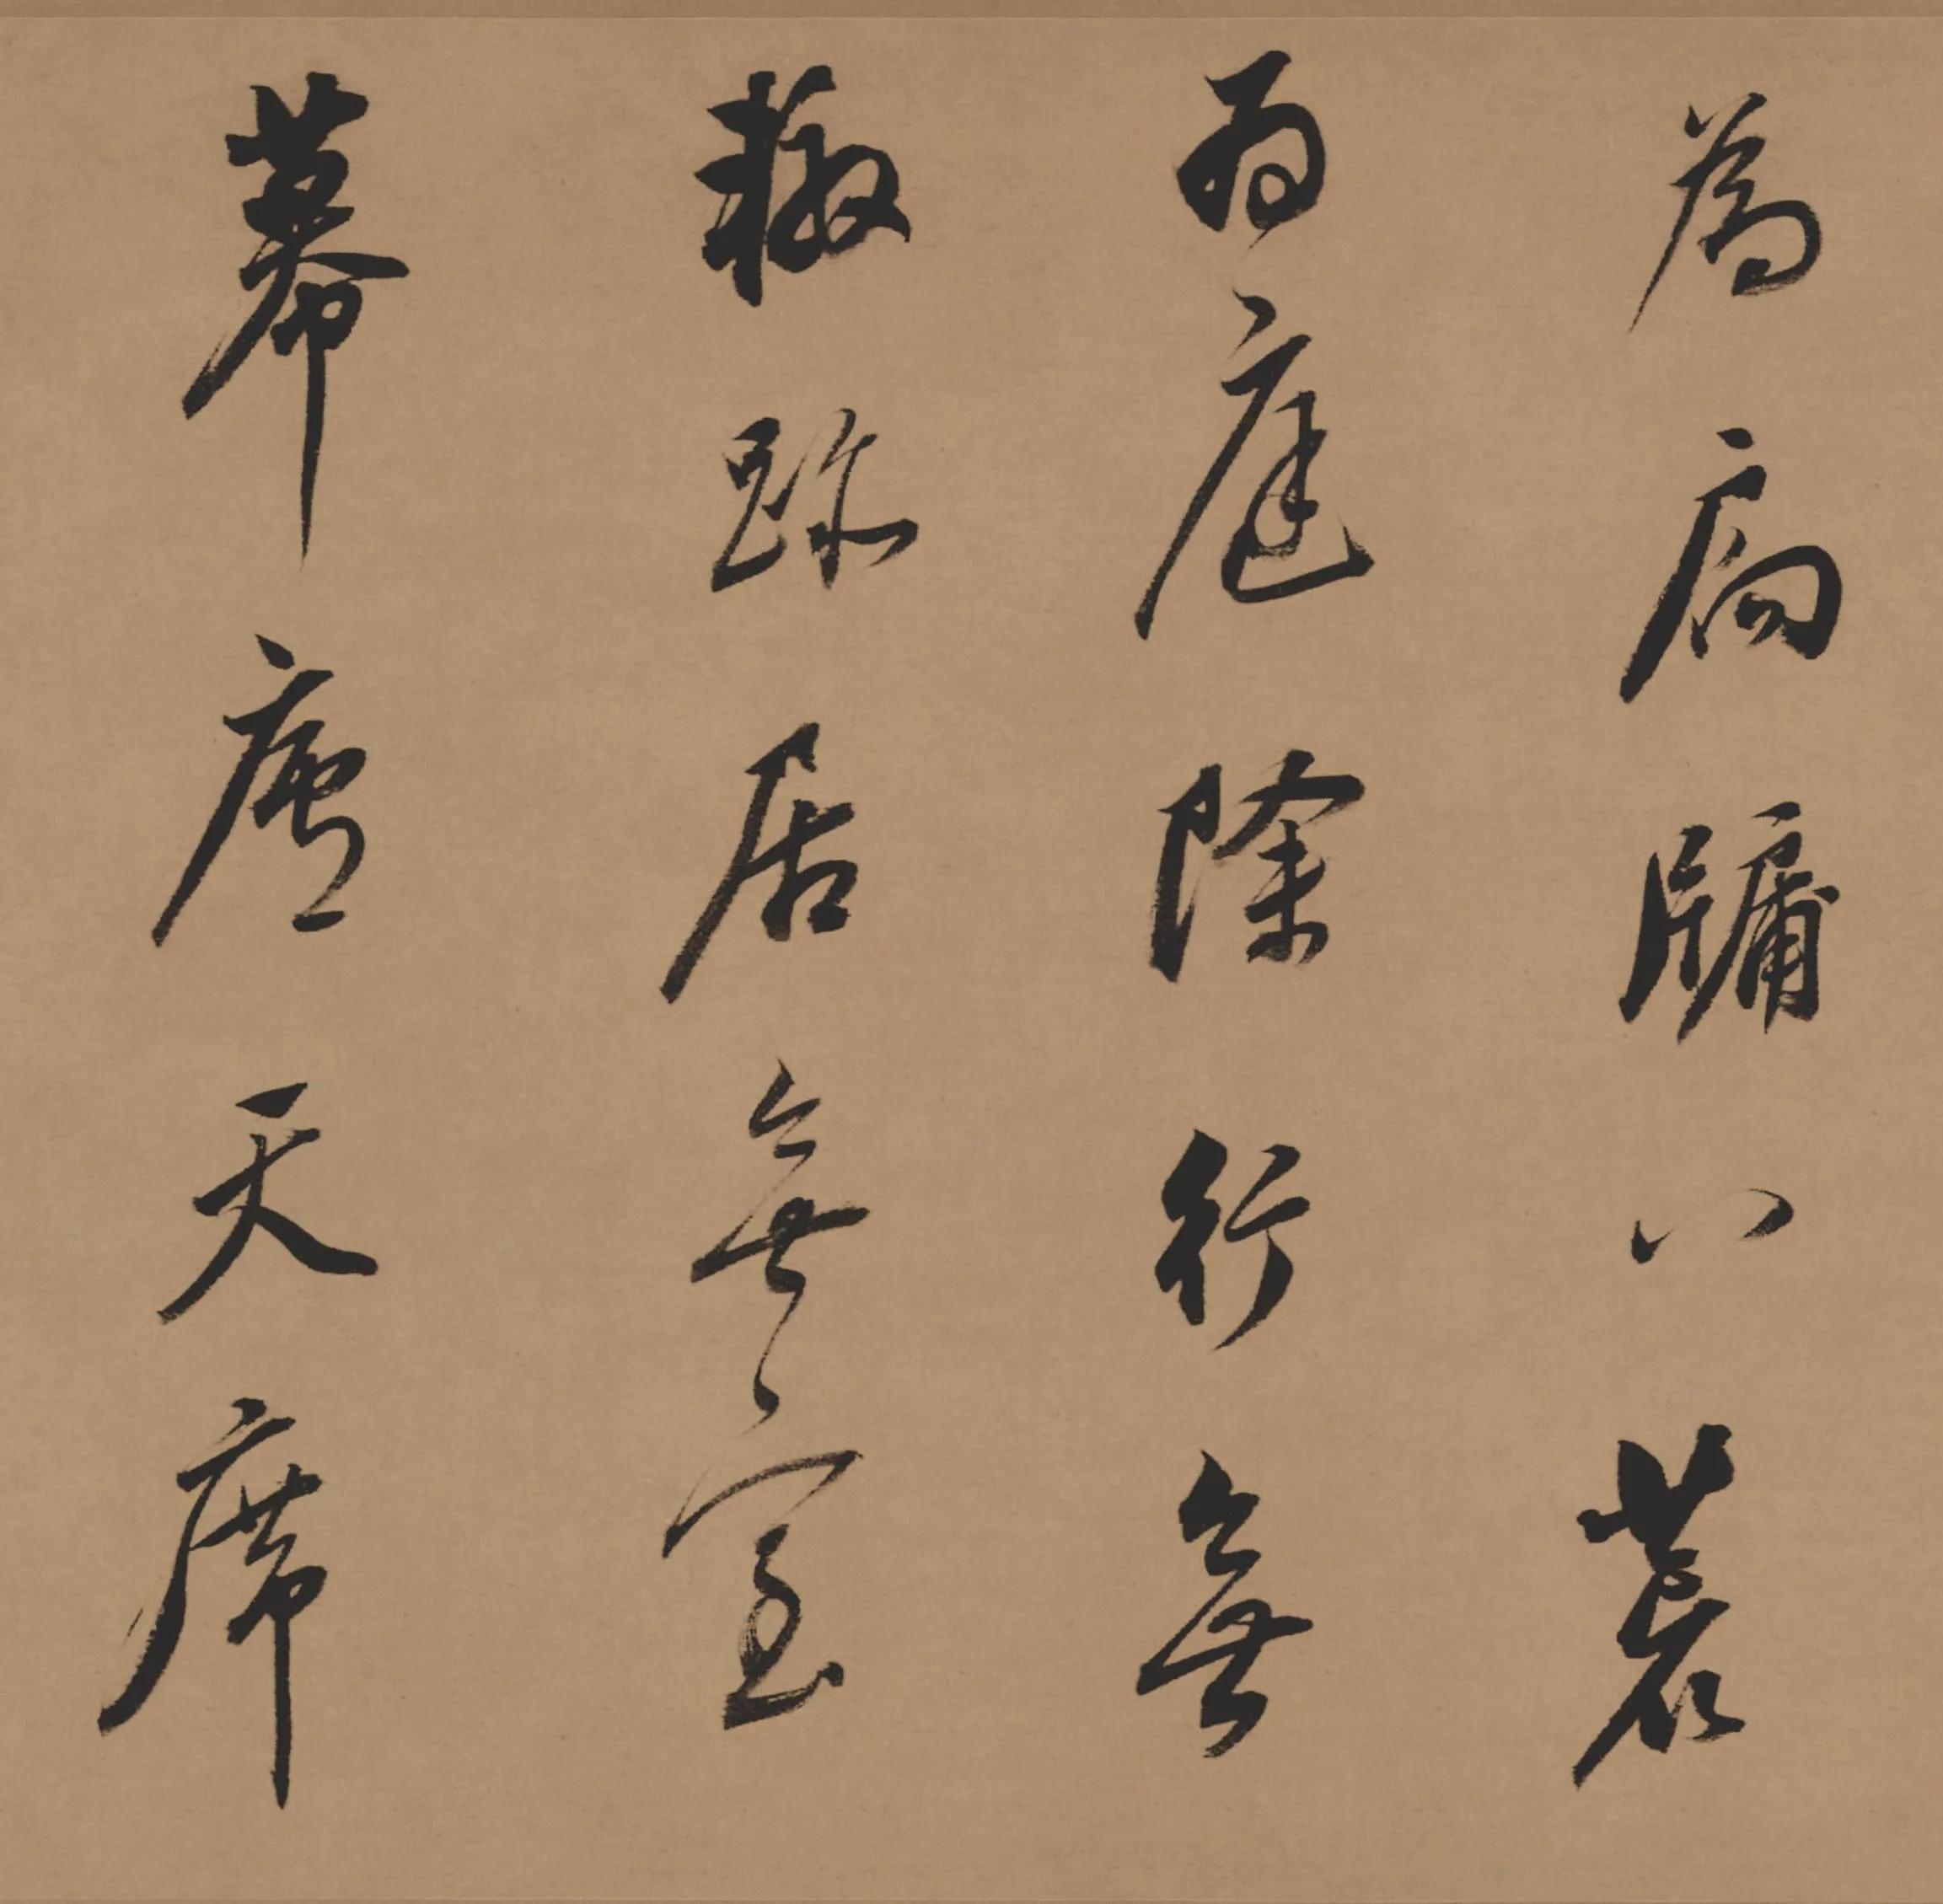 為扃牖八荒
為庭除行無
轍跡居無室
幕廬天席